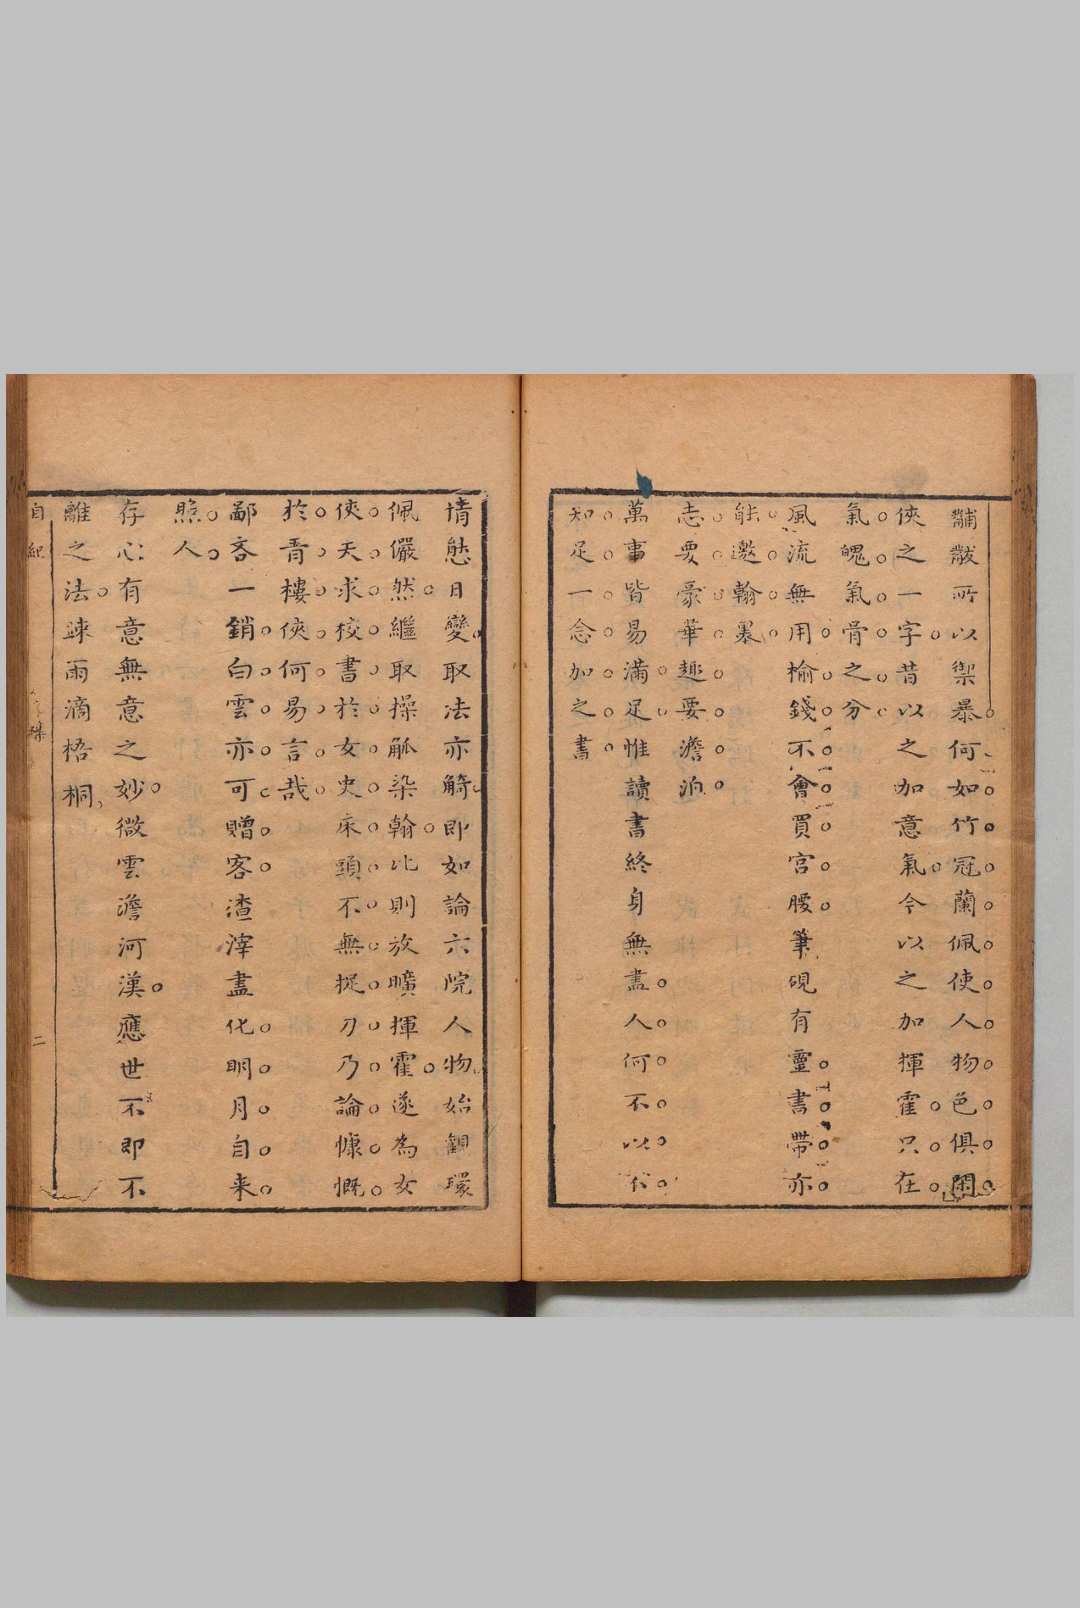 黼黻所以禦暴何如竹冠蘭佩使人物色俱閑
俠之一字昔以之加意氣今以之加揮霍只在
氣魄氣骨之分
風流無用榆錢不會買宮腰筆硯有靈書帶亦
能邀翰墨
志要豪華趣要澹泊
萬事皆易滿足惟讀書終身無盡人何不以不
知足一念加之書
情態日變取法亦觭即如論六院人物始觀環
佩儼然繼取操觚染翰比則放曠揮霍遂為女
俠夭求校書於女史床頭不無捉刀乃論慷慨
於青樓俠何易言哉
鄙吝一銷白雲亦可贈客渣滓盡化明月自来
照人
存心有意無意之妙微雲澹河漢應世不即不
離之法疎雨滴梧桐
自紀
二